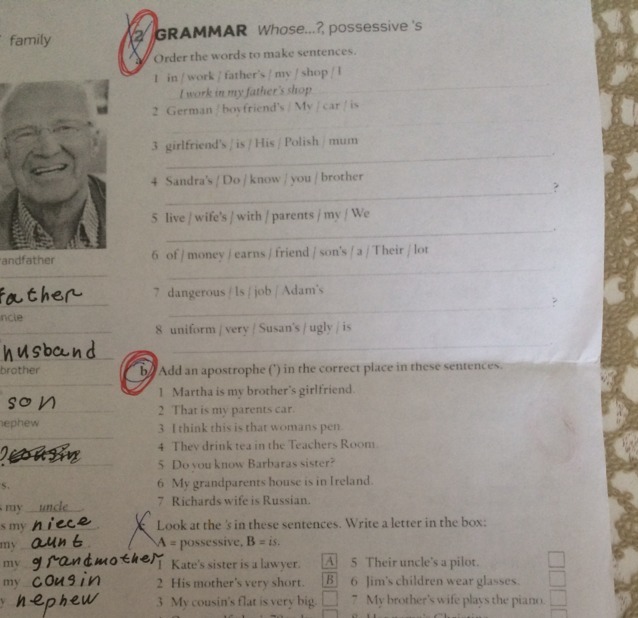 family
andfather
father
ncle
husband
brother
son
nephew
s.
my uncle
s my niece
my aunt
my grandmother
my cousin
y nephew
2 GRAMMAR Whose...?, possessive 's
a Order the words to make sentences.
1 in / work / father's / my / shop / I
I work in my father's shop
2 German / boyfriend's / My / car / is
3 girlfriend's / is / His / Polish / mum
.
4 Sandra's / Do / know / you / brother
?
5 live / wife's / with / parents / my / We
.
6 of / money / earns / friend / son's / a / Their / lot
7 dangerous / Is / job / Adam's
?
8 uniform / very / Susan's / ugly / is
b Add an apostrophe (') in the correct place in these sentences.
1 Martha is my brother's girlfriend.
2 That is my parents car.
3 I think this is that womans pen.
4 They drink tea in the Teachers Room.
5 Do you know Barbaras sister?
6 My grandparents house is in Ireland.
7 Richards wife is Russian.
c Look at the 's in these sentences. Write a letter in the box:
A = possessive, B = is.
1 Kate's sister is a lawyer. A
2 His mother's very short. B
3 My cousin's flat is very big.
5 Their uncle's a pilot.
6 Jim's children wear glasses.
7 My brother's wife plays the piano.